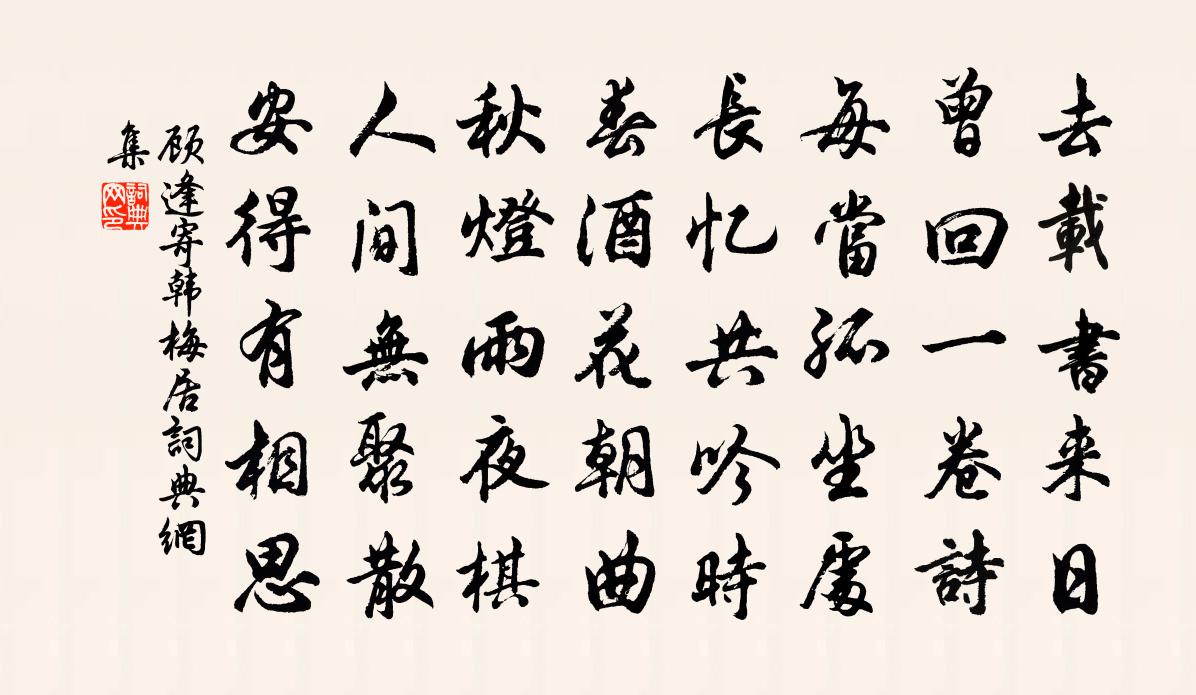 去載書来日
曾回一卷詩
每當孤坐處
長忆共吟時
春酒花朝曲
秋燈雨夜棋
人間無聚散
安得有相思
顾逢寄韩梅居詞典網
集
詞典
网